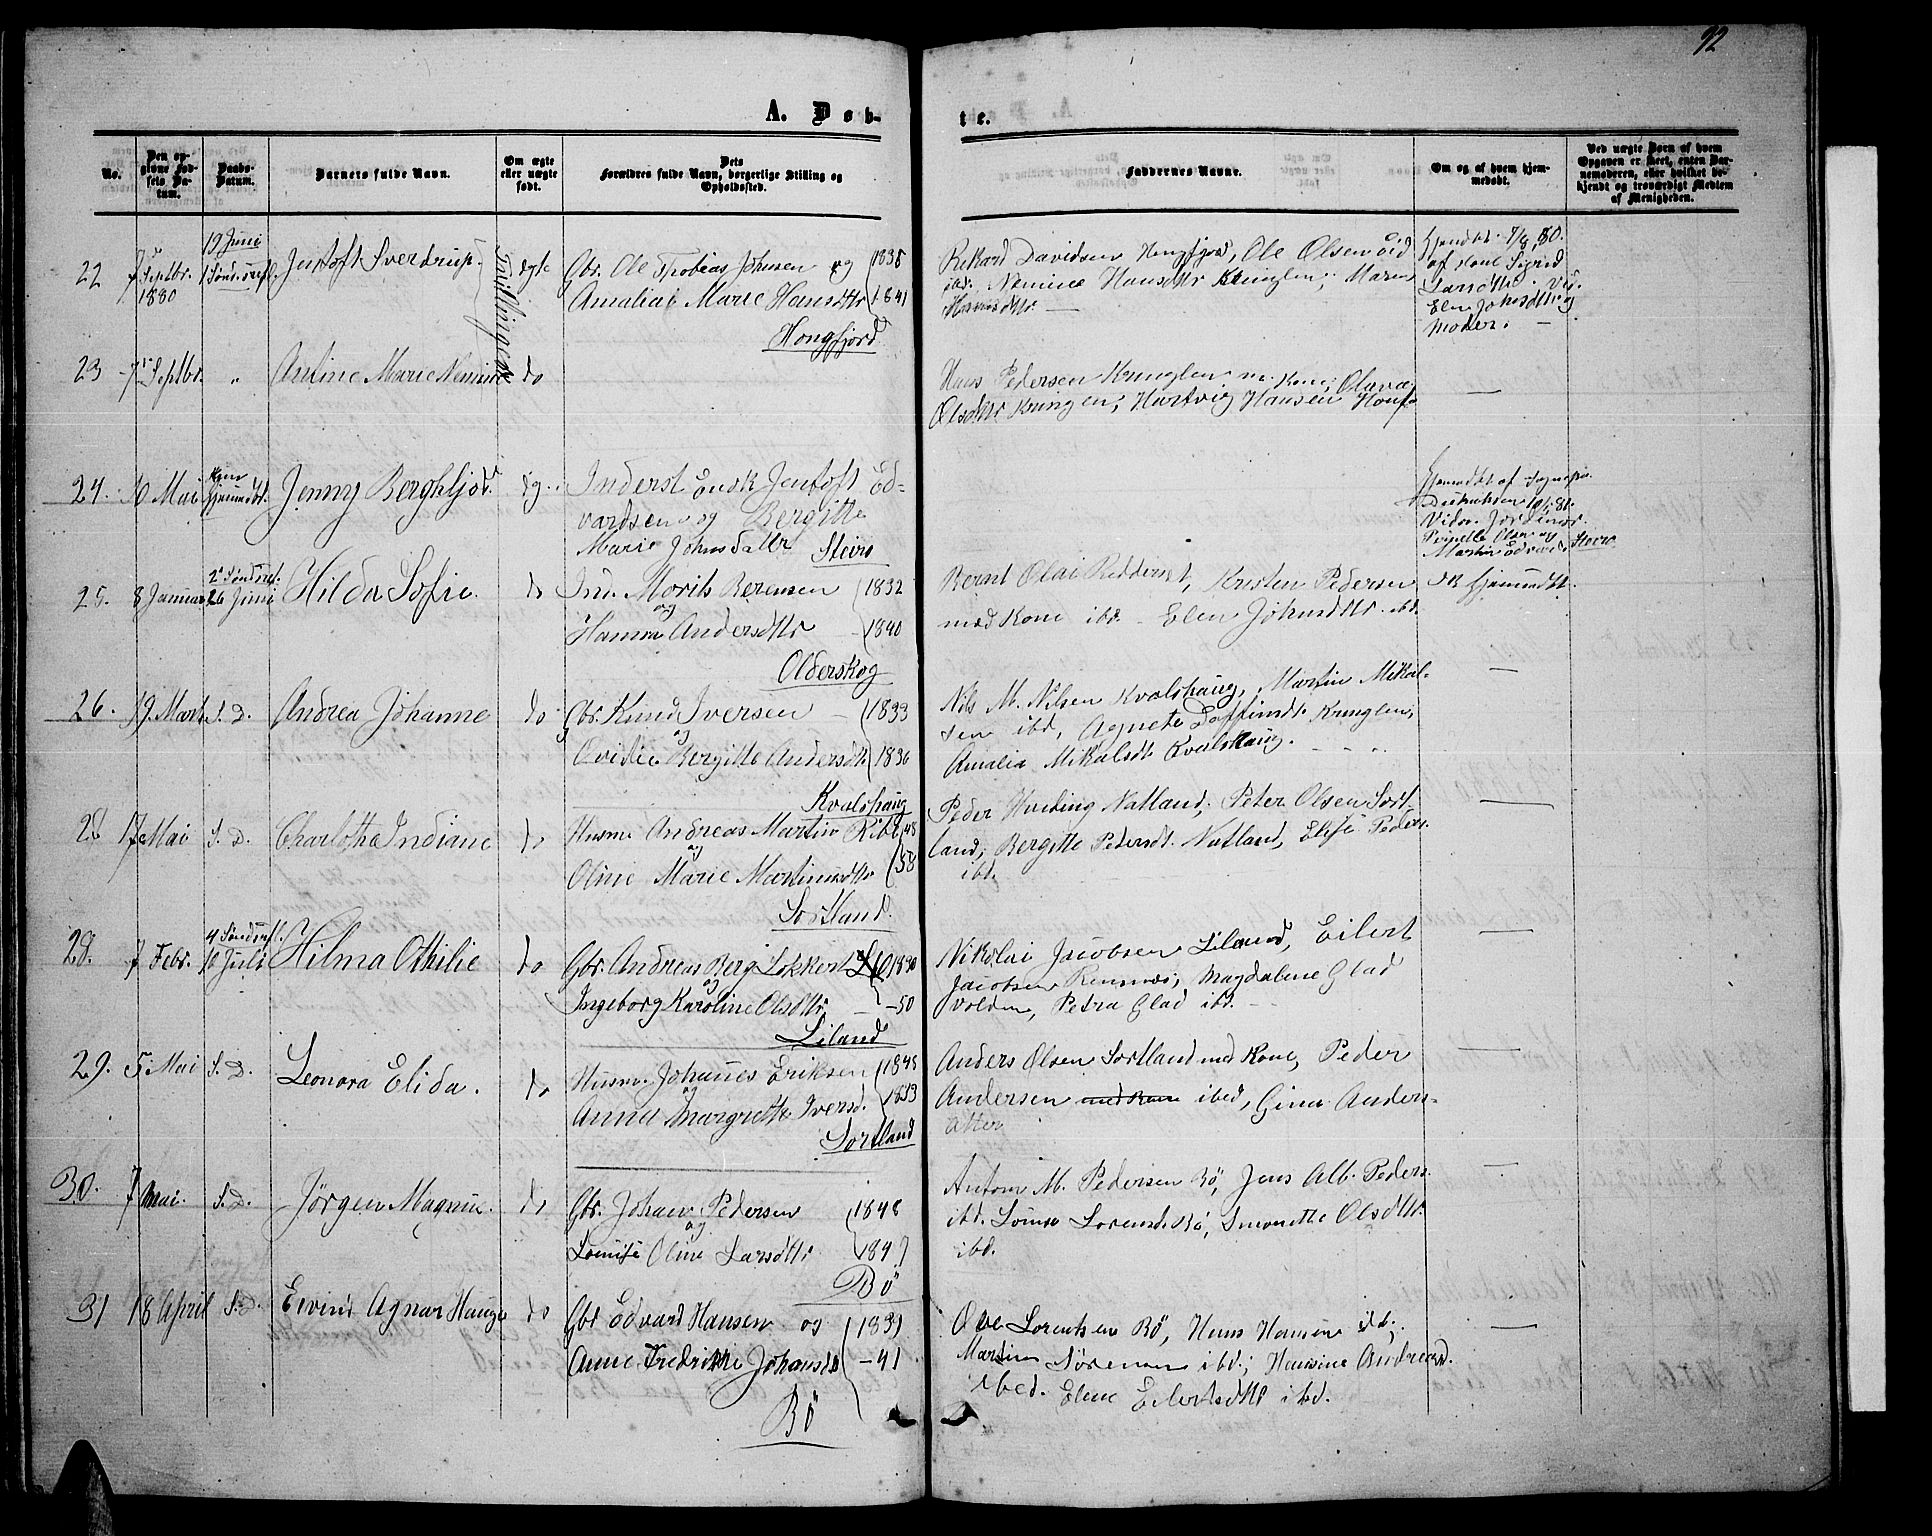 92
A. Døb-
te.
No.
Den opgivne Fødsels Datum.
Daabs-Datum.
Barnets fulde Navn.
Om ægte eller uægte født.
Dets Forældres fulde Navn, borgerlige Stilling og Opholdssted.
Faddernes Navne.
Om og af hvem hjemmedøbt.
Ved uægte Børn af hvem Opgaven er skeet, enten Barnemoderen, eller hvilket bekjendt og troværdigt Medlem af Menigheden.
22 7 Septbr. 1880 19 Juni Jentoft Sverdrup. Tvillinger ægte Gbr. Ole Tobias Johnsen og 1838
Amalia Marie Hansdtr 1841
Hongfjord
Rikard Davidsen Hongfjord, Ole Olsen Eid
ibd. Nemine Hansdtr Kringlen; Maren
Hansdtr. —
af Kone Sigrid
Larsdtr.
Elen Johnsdtr og
Moder. —
23 7 Septbr. " Antine Marie Nemine do
Hans Pedersen Kringlen m. Kone; Olava
Olsdtr Kringen; Hartvig Hansen Honf. —
24. 10 Mai Hjemmedbt. Jenny Berghljod. æg. Inderst Enok Jentoft Ed-
vardsen og Bergitte
Marie Johnsdatter Steiro
Hjemmedbt af Sognepr.
Martin Edvards. Steiro
25. 8 Januar 26 Juni Hilda Sofie. do Ind. Morits Berensen 1832
og
Hanna Andersdtr — 1840
Olderskog
Bernt Olai Reddernt, Kristen Pedersen
med Kone ibd. — Elen Johnsdtr. ibd.
26. 19. Marts S. D. Andrea Johanne do Gbr. Knud Iversen — 1833
og
Ovidie Bergitte Andersdtr 1836
Kvalshaug
Nils M. Nilsen Kvalshaug, Martin Mikal-
sen ibd, Agnete Daffinsdt. Kringlen;
Amalia Mikalsdt Kvalshaug. —
28 17 Mai S. D. Charlotha Indiane do Husm Andreas Martin Ribe 48
og
Oline Marie Martinusdtr 58
Sortland.
Peder Hveding Natland; Peter Olsen Sort-
land; Bergitte Pedersdt. Natland, Elise Peders.
ibd. —
28. 7 Febr. 4 Søndr eft. 10 Juli Hilma Othilie do Gbr. Andreas Berg Lokkert 1830
og
Ingeborg Karoline Olsdtr. — -50
Liland
Nikolai Jacobsen Liland, Eilert
Jacobsen Rensnæs, Magdalene Glad
Volden, Petra Glad ibd. —
29. 5 Mai S. D. Leonora Elida. do Husm. Johannes Eriksen 1848
og
Anna Margrethe Iversd. 1853
Sortland
Anders Olsen Sortland med Kone, Peder
Andersen med Kone ibed, Gina Anders-
datter —
30. 7 Mai. S. D. Jörgen Magnus. do Gbr. Johan Pedersen 1848
og
Lovise Oline Larsdtr 1847
Bö
Anton M. Pedersen Bö, Jens Alb. Peders.
ibd. Lovise Lorensd. Bö, Simonette Olsdtr.
ibd. —
31 18 April S. D. Eivind Agnar Hauge do Gbr Edvard Hansen og 1839
Anne Fredrikke Johansd —41
Bö
Ove Lorentsen Bö, Hans Hansen ibd;
Martin Sörensen ibd.; Hansine Andreasd.
ibed. Elene Eilertsdtr ibd. —